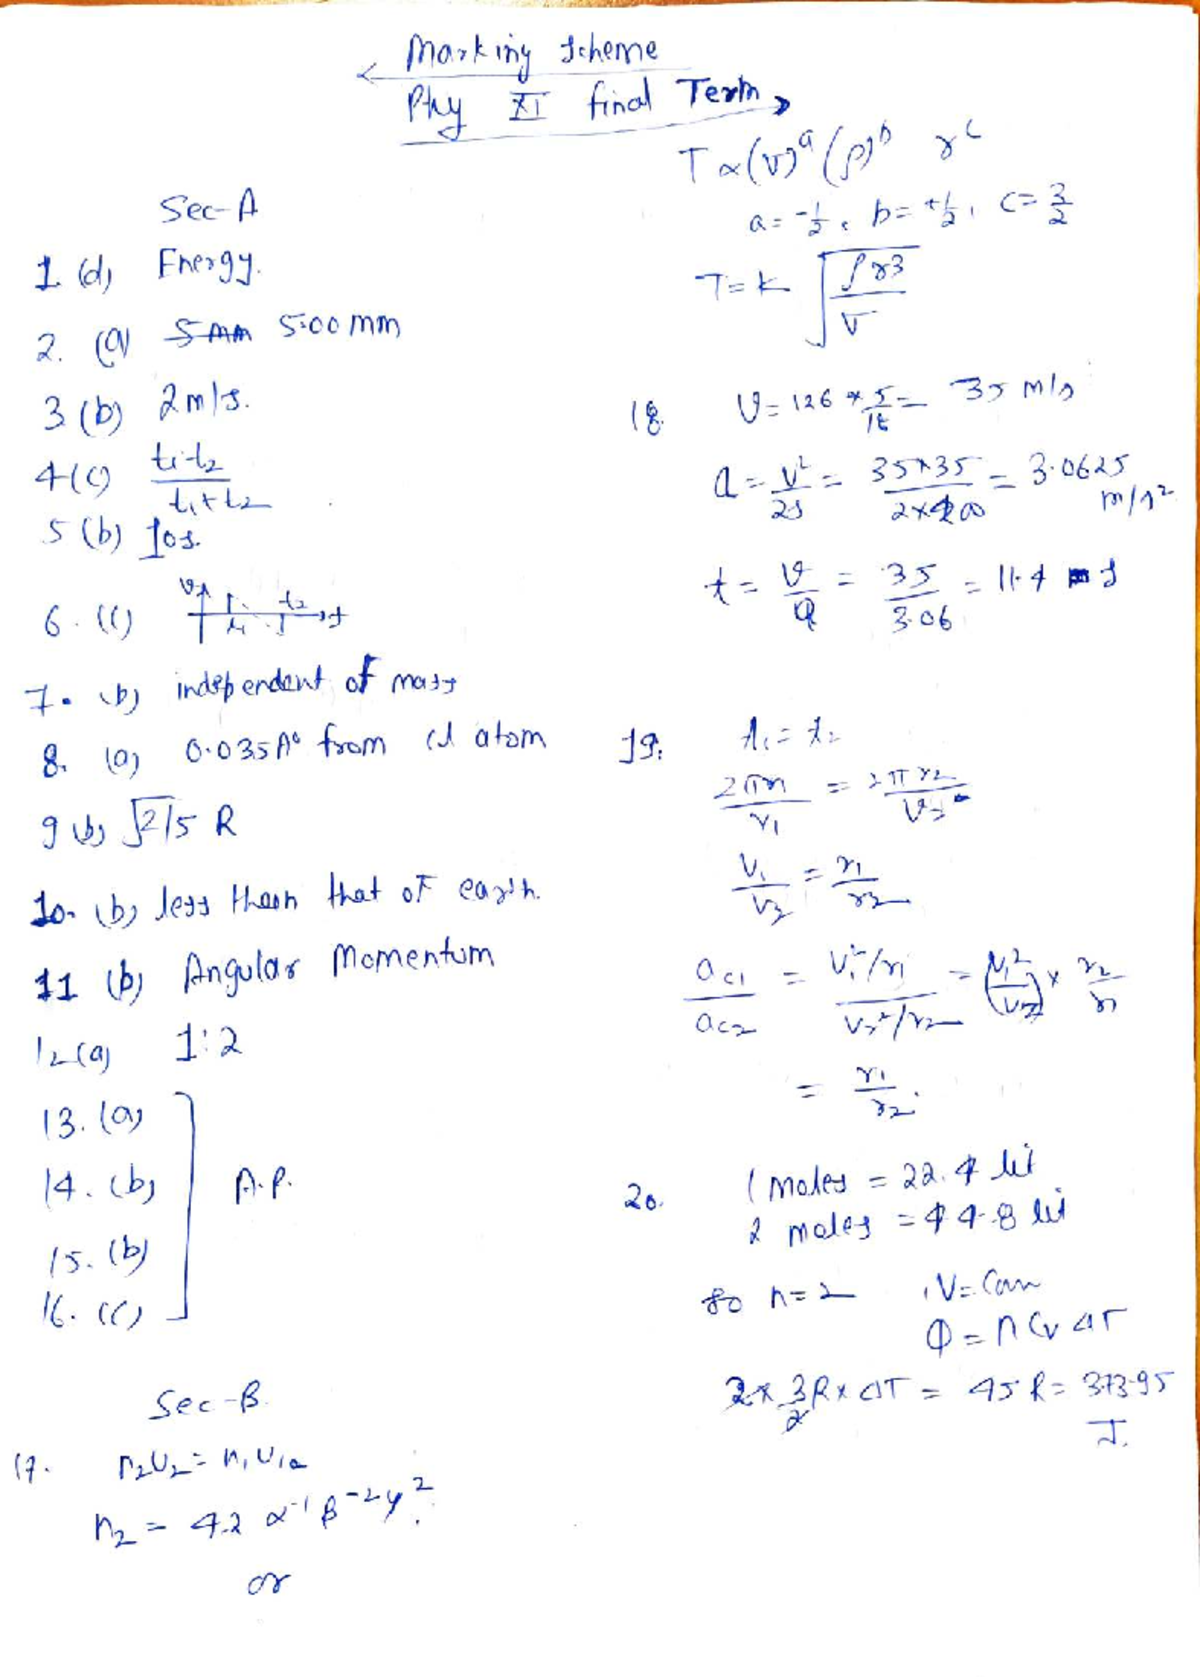 Marking Scheme
Phy XI final Term
Sec-A
1 (d) Energy.
2. (a) 5 mm 5.00 mm
3 (b) 2 m/s.
4 (c) t₁-t₂ / t₁+t₂
5 (b) 10s.
6. (c) v t₁ t₂ t
7. (b) independent of mass
8. (a) 0.035 A° from Cl atom
9 (b) √2/5 R
10. (b) less than that of earth.
11 (b) Angular Momentum
12 (a) 1:2
13. (a)
14. (b) A.P.
15. (b)
16. (c)
Sec-B
17. n₂u₂ = n₁u₁
n₂ = 4.2 α⁻¹ β⁻² γ²
or
T ∝ (v)ᵃ (ρ)ᵇ r ᶜ
a = -1/2, b = +1/2, c = 3/2
T = k √(ρ r3 / v)
18. v = 126 * 5/18 = 35 m/s
a = v²/2s = 35*35 / 2×200 = 3.0625 m/s²
t = v/a = 35/3.06 = 11.4 s
19. t₁ = t₂
2πr₁/v₁ = 2πr₂/v₂
v₁/v₂ = r₁/r₂
ac₁/ac₂ = v₁²/r₁ / v₂²/r₂ = (v₁²/v₂) × r₂/r₁
= r₁/r₂.
20. 1 moles = 22.4 lit
2 moles = 44.8 lit
so n = 2 , V = Con
Q = n Cv ΔT
2 × 3/2 R × ΔT = 45 R = 373.95
J.